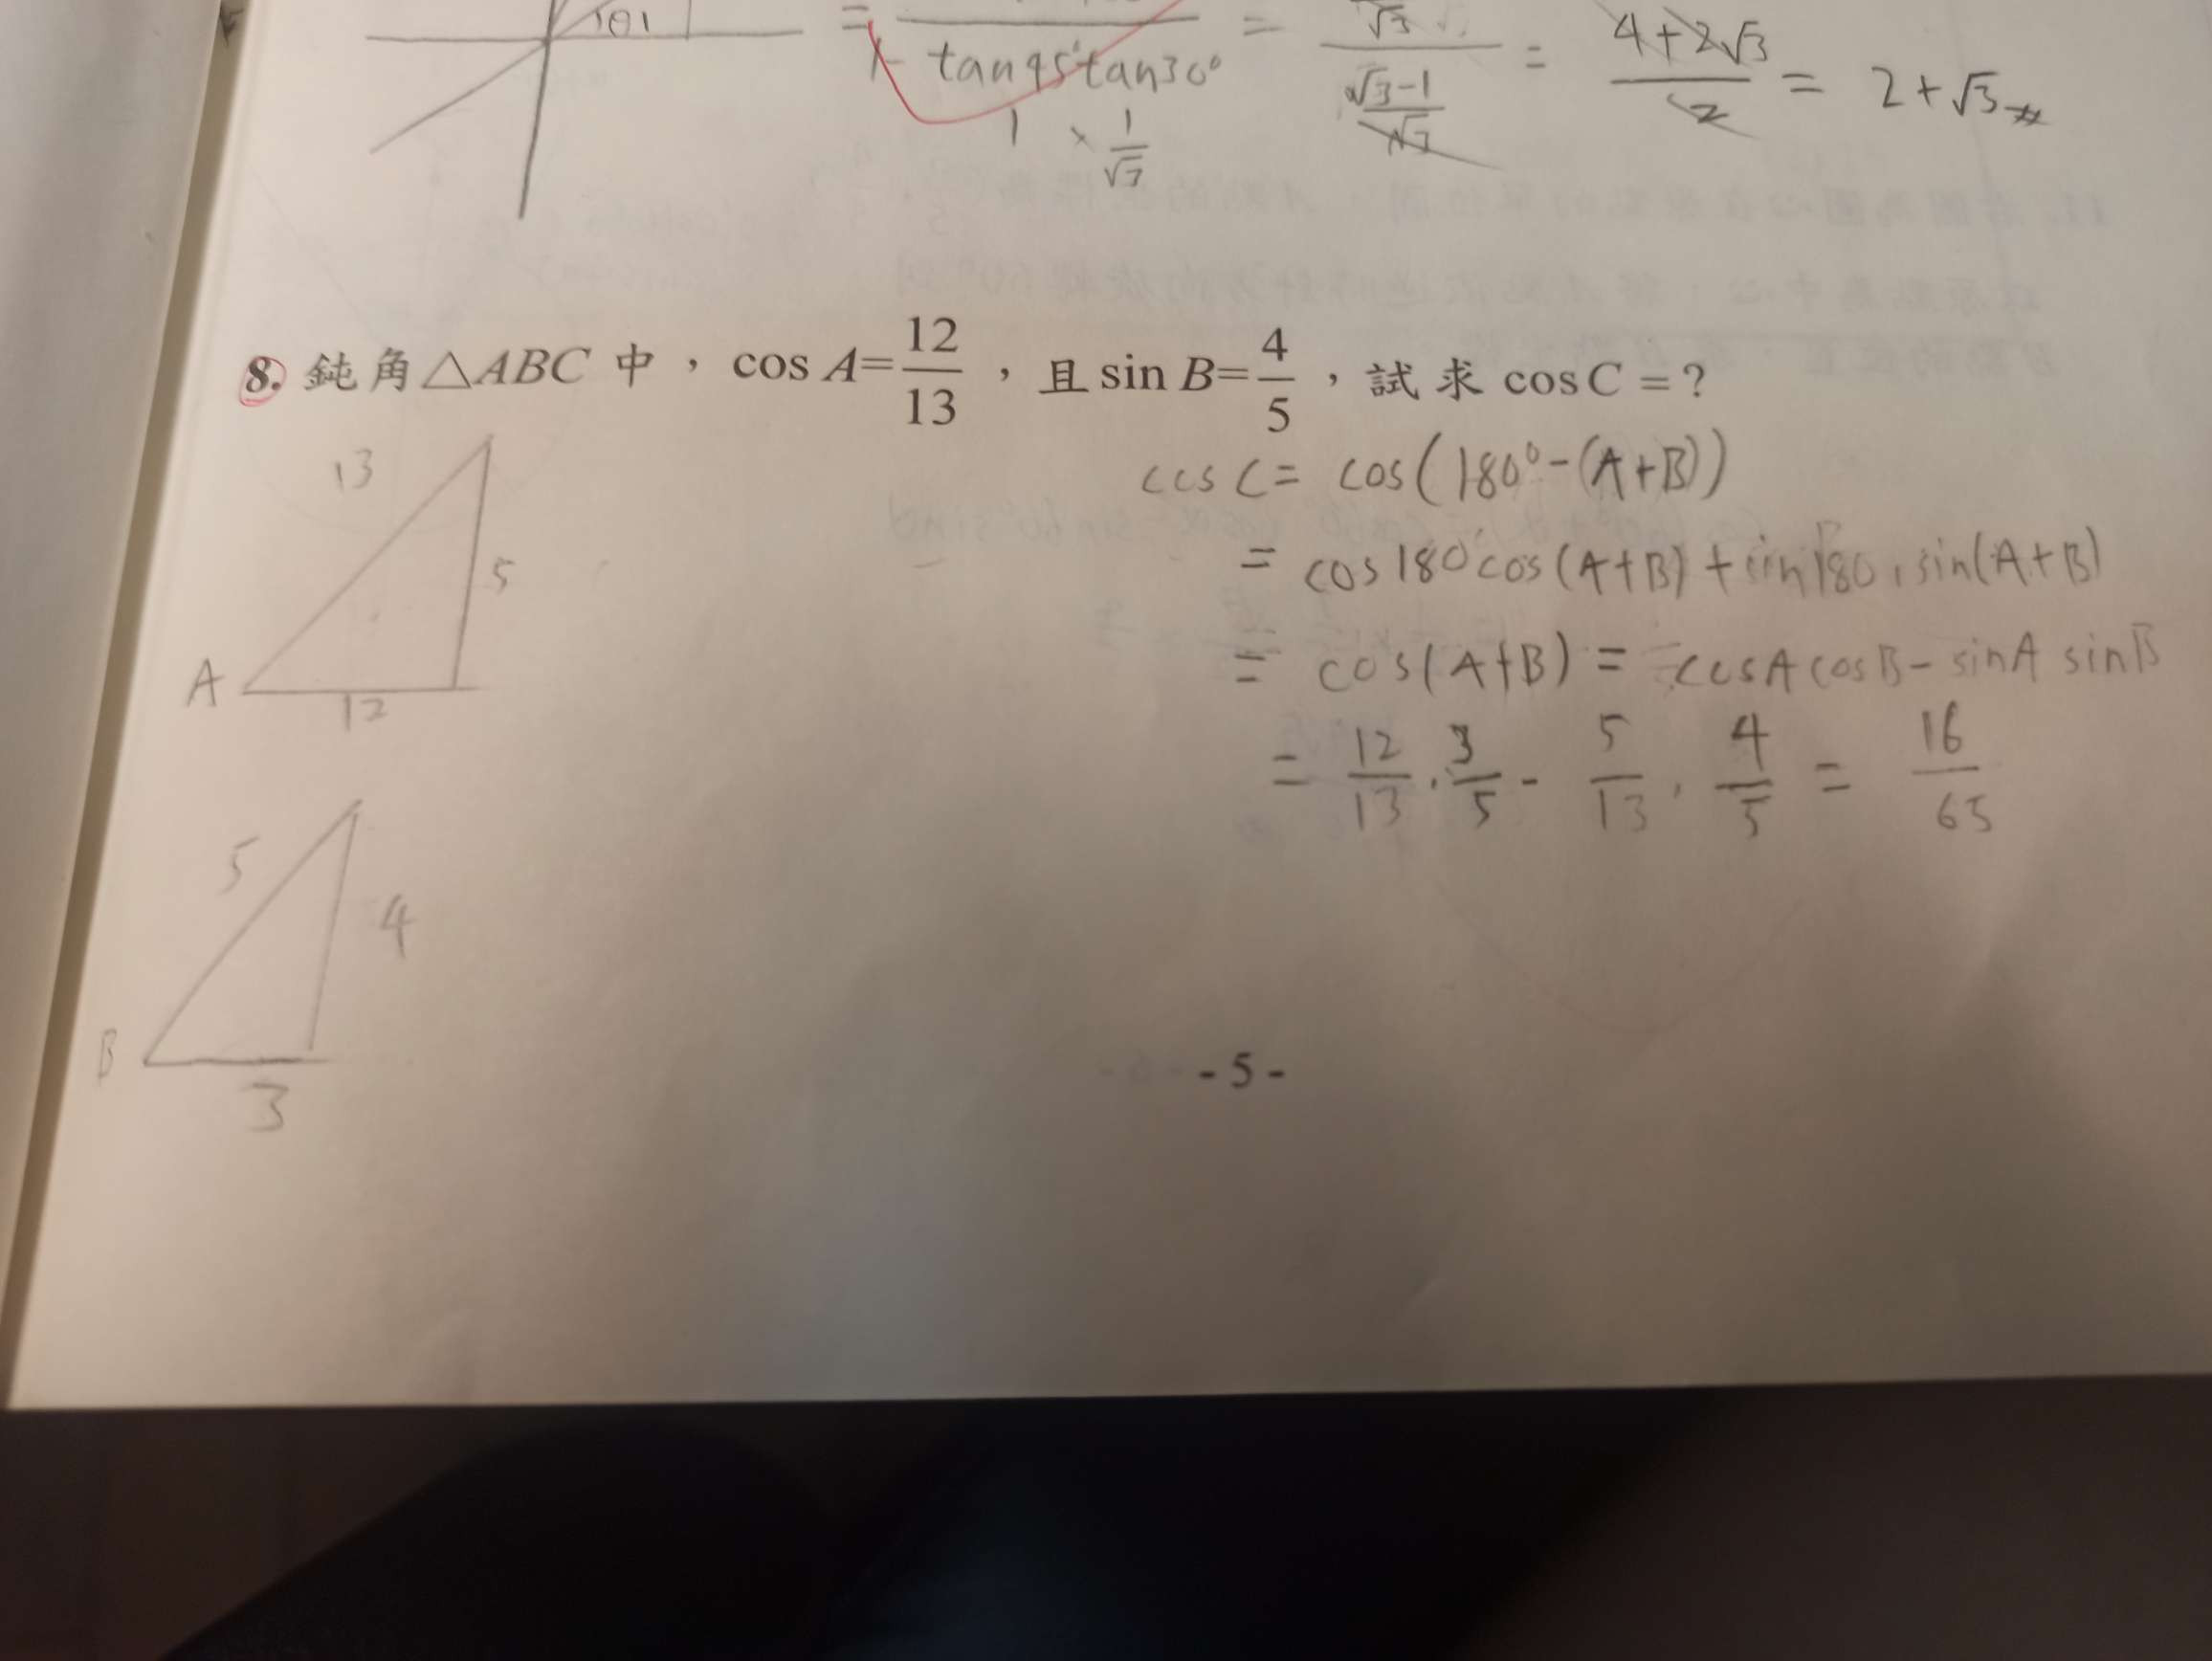 1θ1
= / 1 - tan45°tan30° = √3 / (√3-1)/√3 = (4+2√3)/2 = 2+√3 #
1 × 1/√3
8. 鈍角△ABC 中，cos A=12/13，且 sin B=4/5，試求 cos C=？
13
5
A
12
5
4
B
3
cos C= cos(180°-(A+B))
= cos180°cos(A+B) + sin180°.sin(A+B)
= cos(A+B) = -cosA cosB - sinA sinB
= 12/13 . 3/5 - 5/13 . 4/5 = 16/65
- 5 -